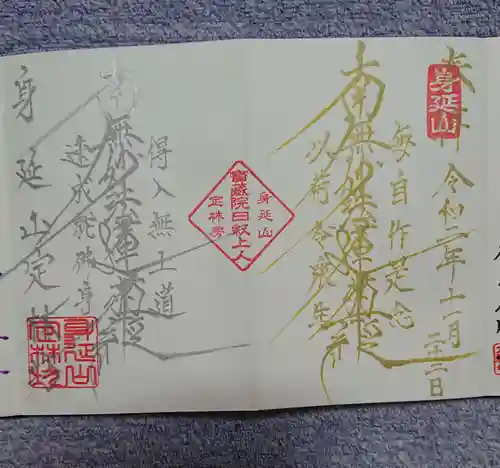 奉拝
身延山
令和二年十一月
二十二日
毎自作是念
南無妙法蓮華経
以何令衆生
身延山
寶蔵院日叙上人
定林坊
得入無上道
南無妙法蓮華経
速成就佛身
身延山定林坊
身延山
定林坊